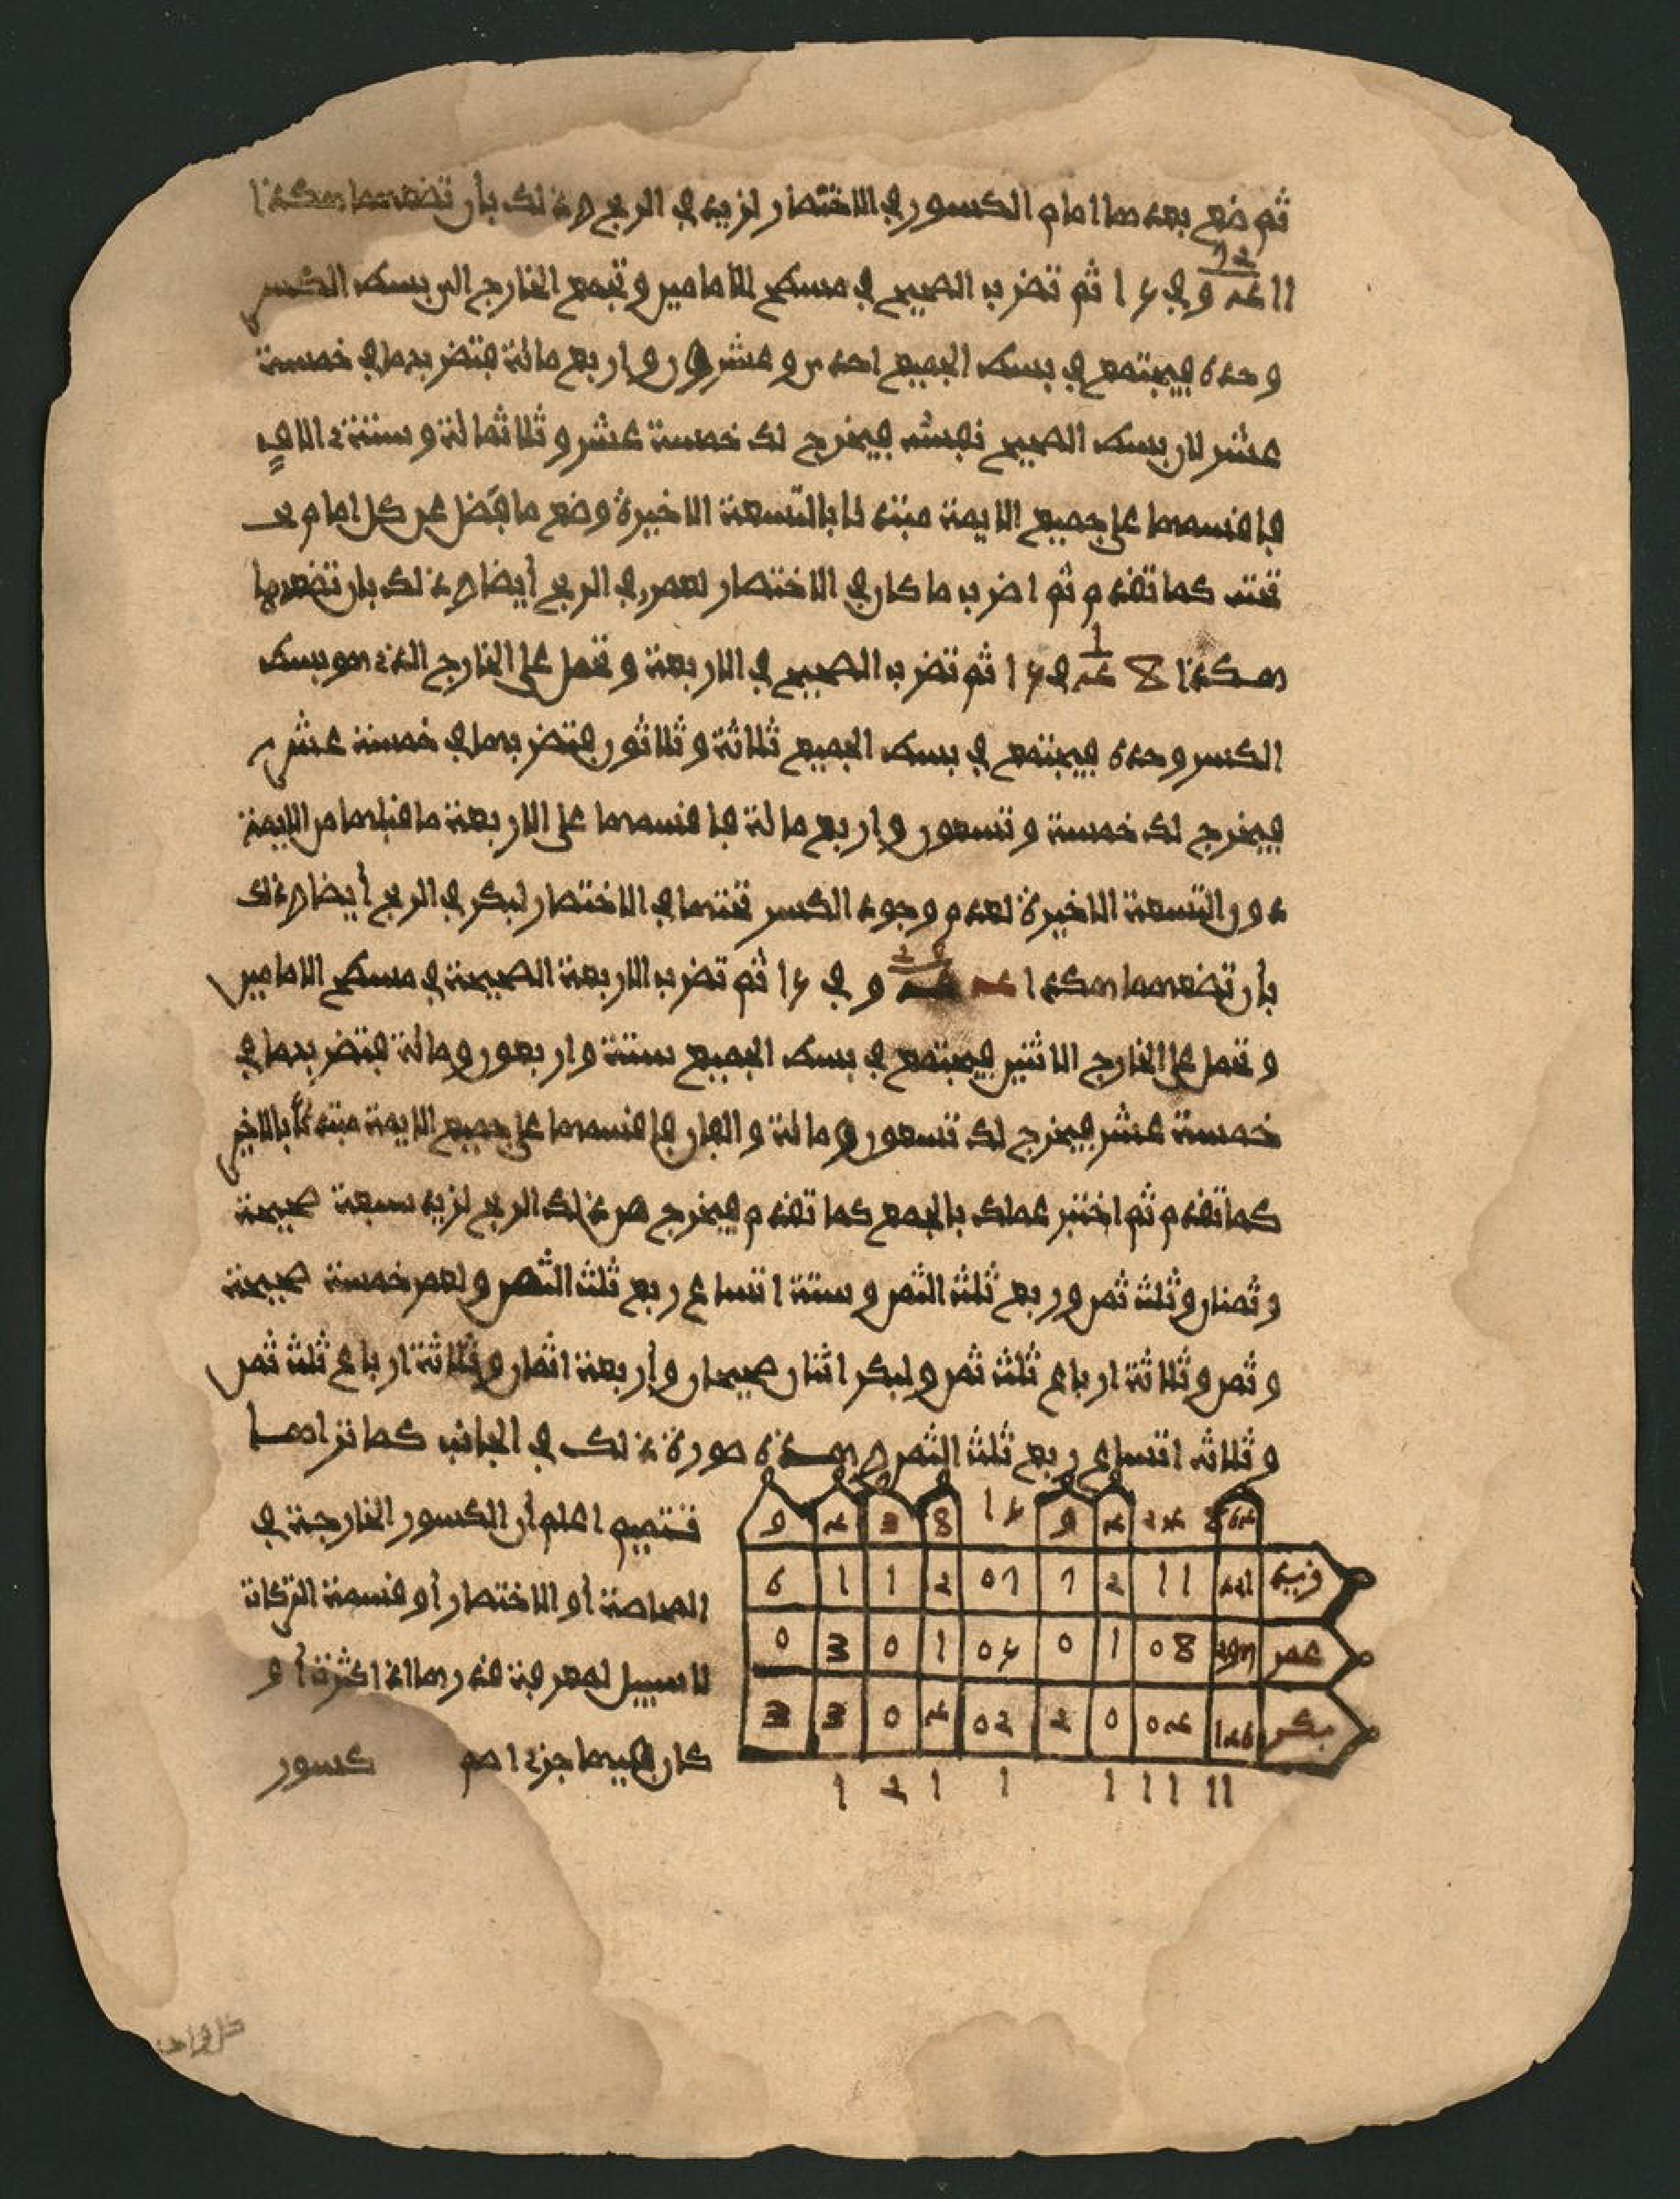 ثم ضع بعدها امام الكسور في الاختصار لزيد في الربح وذلك بأن تضعهما هكذا
11 4 9 في 15 ثم تضرب الصحيح في مسطح الامامين وتجمع الخارج الى بسط الكسر
وحده فيجتمع في بسط الجميع احدى وعشرون واربع مائة فتضربها في خمسة
عشر لان بسط الصحيح نفسه فيخرج لك خمسة عشر وثلاثمائة وستة ءالاف
فاقسمها على جميع الايمة مبتدئا بالتسعة الاخيرة وضع ما فضل عن كل امام
تحته كما تقدم ثم اضرب ما كان في الاختصار لعمر في الربح أيضا وذلك بان تضعها
هكذا 8 4 في 15 ثم تضرب الصحيح في الاربعة وتحمل على الخارج الذي هو بسط
الكسر وحده فيجتمع في بسط الجميع ثلاثة وثلاثون فتضربها في خمسة عشر
فيخرج لك خمسة وتسعون واربع مائة فاقسمها على الاربعة ما قبلها من الايمة
دون التسعة الاخيرة لعدم وجود الكسر تحتها في الاختصار لبكر في الربح أيضا وذلك
بأن تضعهما هكذا 4 4 9 في 15 ثم تضرب الاربعة الصحيحة في مسطح الامامين
وتحمل على الخارج الاثنين فيجتمع في بسط الجميع ستة واربعون ومائة فتضربها في
خمسة عشر فيخرج لك تسعون ومائة والفان فاقسمها على جميع الايمة مبتدئا بالاخير
كما تقدم ثم اختبر عملك بالجمع كما تقدم فيخرج من ذلك الربح لزيد سبعة صحيحة
وثمنان وثلث ثمن وربع ثلث الثمن وستة اتساع ربع ثلث الثمن ولعمر خمسة صحيحة
وثمن وثلاثة ارباع ثلث ثمن ولبكر اثنان صحيحان وأربعة اثمان وثلاثة ارباع ثلث ثمن
وثلاثة اتساع ربع ثلث الثمن وهذه صورة ذلك في الجانب كما تراها
9 4 3 8 15 9 4 24
تتميم اعلم أن الكسور الخارجة في
6 1 1 2 07 7 2 11 زيد
المحاصة أو الاختصار أو قسمة التركات
0 3 0 1 05 0 1 08 عمر
لا سبيل لمعرفة قدرها اذا كثرت أو
3 3 0 4 02 2 0 04 بكر
كان فيها جزء اصم كسور
1 2 1 1 1 1 1 11